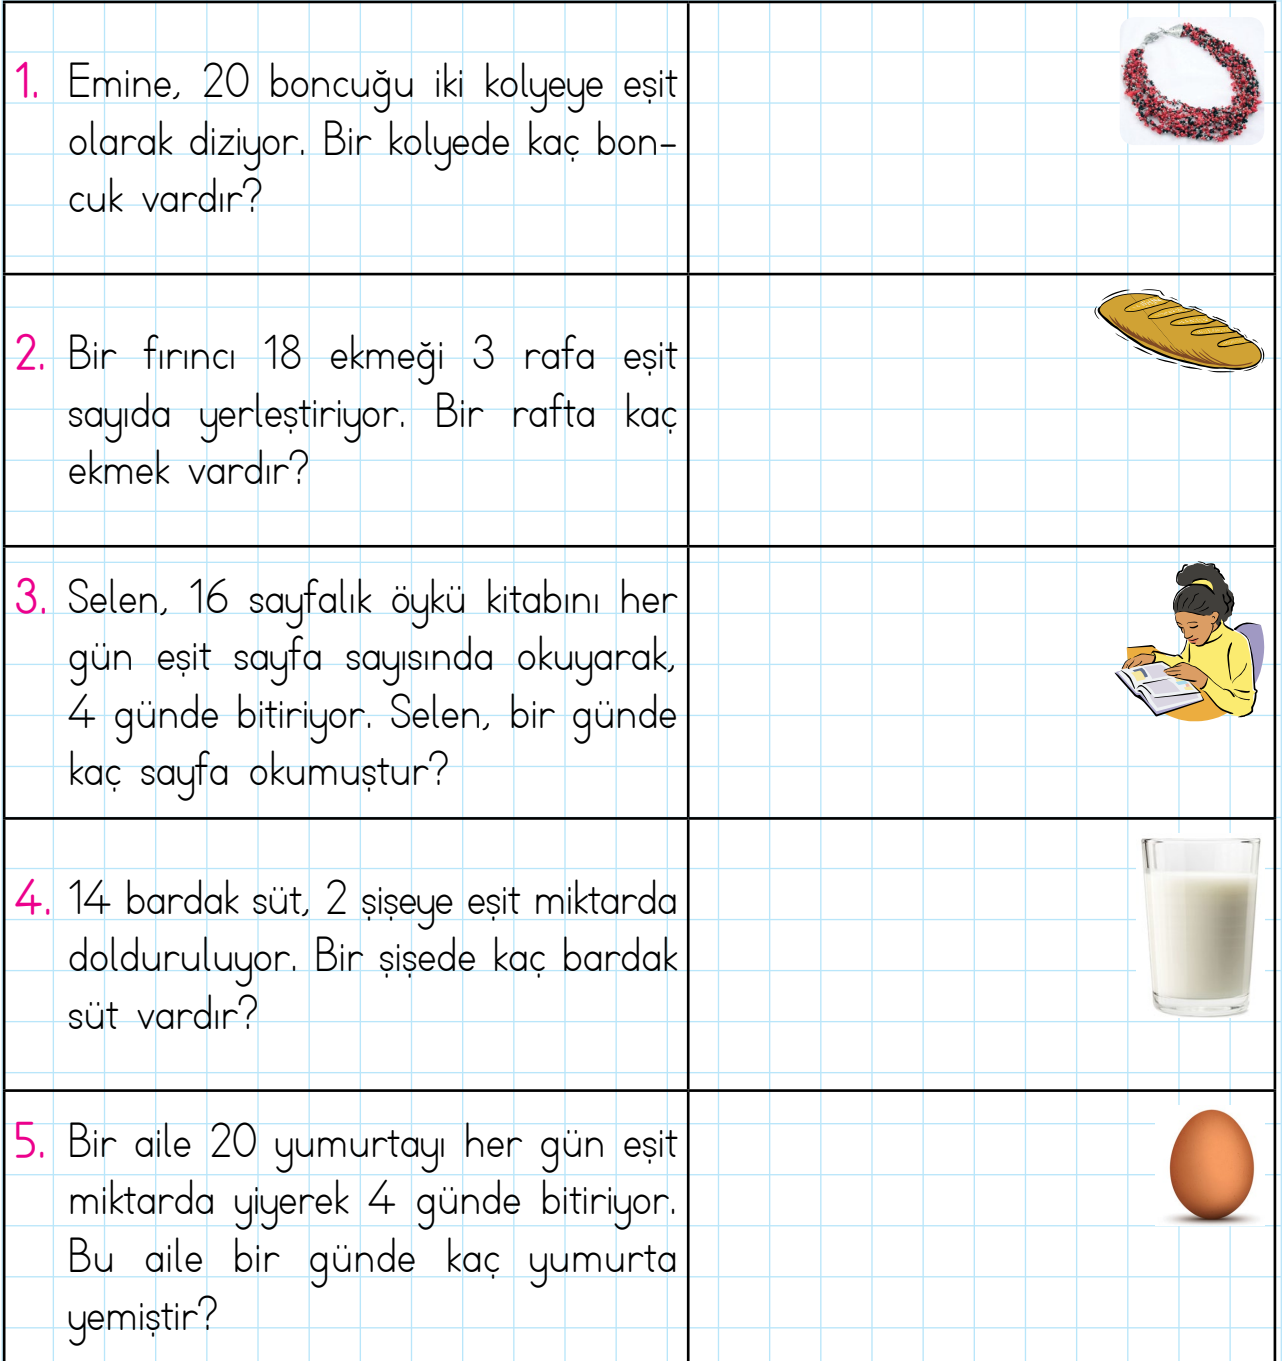 1. Emine, 20 boncuğu iki kolyeye eşit
olarak diziyor. Bir kolyede kaç bon-
cuk vardır?
2. Bir fırıncı 18 ekmeği 3 rafa eşit
sayıda yerleştiriyor. Bir rafta kaç
ekmek vardır?
3. Selen, 16 sayfalık öykü kitabını her
gün eşit sayfa sayısında okuyarak,
4 günde bitiriyor. Selen, bir günde
kaç sayfa okumuştur?
4. 14 bardak süt, 2 şişeye eşit miktarda
dolduruluyor. Bir şişede kaç bardak
süt vardır?
5. Bir aile 20 yumurtayı her gün eşit
miktarda yiyerek 4 günde bitiriyor.
Bu aile bir günde kaç yumurta
yemiştir?